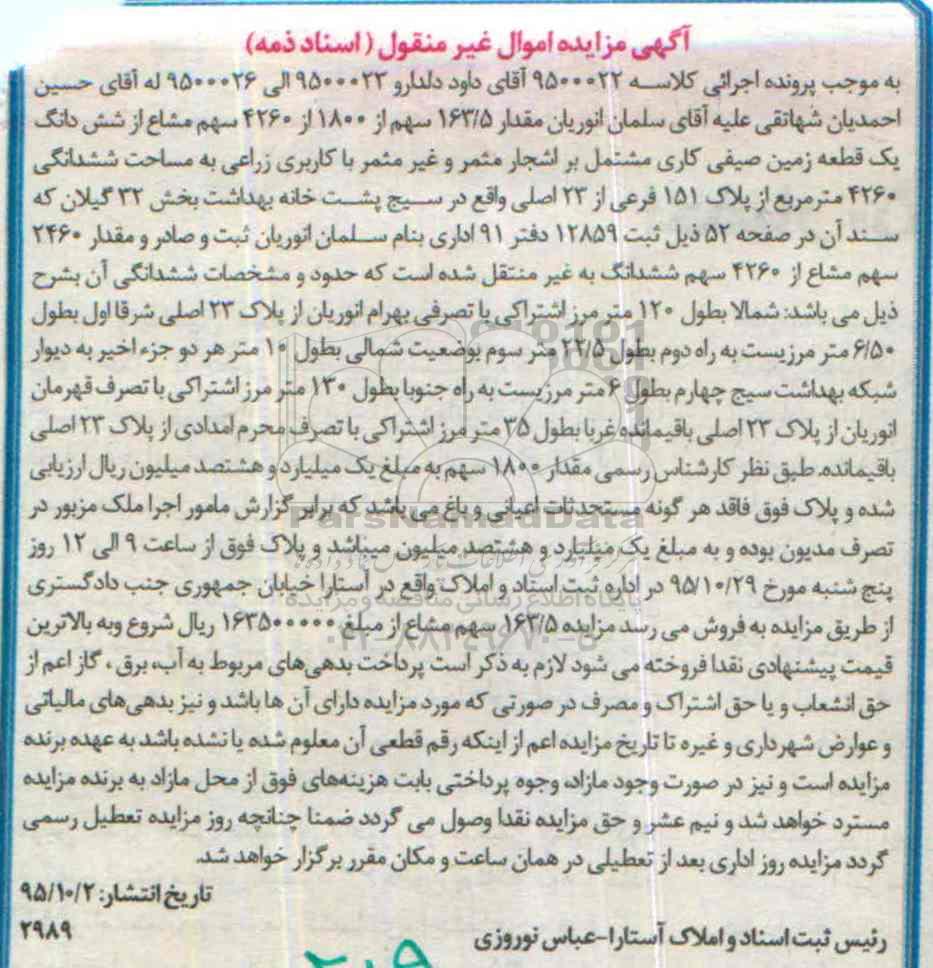 آگهی مزایده اموال غیر منقول (اسناد ذمه)
به موجب پرونده اجرائی کلاسه ۹۵۰۰۰۲۲ آقای داود دلدارو ۹۵۰۰۰۲۳ الی ۹۵۰۰۰۲۶ له آقای حسین
احمدیان شهاتقی علیه آقای سلمان انوریان مقدار ۱۶۳/۵ سهم از ۱۸۰۰ از ۴۲۶۰ سهم مشاع از شش دانگ
یک قطعه زمین صیفی کاری مشتمل بر اشجار مثمر و غیر مثمر با کاربری زراعی به مساحت ششدانگی
۴۲۶۰ مترمربع از پلاک ۱۵۱ فرعی از ۲۳ اصلی واقع در سیج پشت خانه بهداشت بخش ۳۲ گیلان که
سند آن در صفحه ۵۲ ذیل ثبت ۱۲۸۵۹ دفتر ۹۱ اداری بنام سلمان انوریان ثبت و صادر و مقدار ۲۴۶۰
سهم مشاع از ۴۲۶۰ سهم ششدانگ به غیر منتقل شده است که حدود و مشخصات ششدانگی آن بشرح
ذیل می باشد: شمالا بطول ۱۲۰ متر مرز اشتراکی با تصرفی بهرام انوریان از پلاک ۲۳ اصلی شرقا اول بطول
۶/۵۰ متر مرزیست به راه دوم بطول ۲۲/۵ متر سوم بوضعیت شمالی بطول ۱۰ متر هر دو جزء اخیر به دیوار
شبکه بهداشت سیج چهارم بطول ۶ متر مرزیست به راه جنوبا بطول ۱۳۰ متر مرز اشتراکی با تصرف قهرمان
انوریان از پلاک ۲۳ اصلی باقیمانده غربا بطول ۳۵ متر مرز اشتراکی با تصرف محرم امدادی از پلاک ۲۳ اصلی
باقیمانده. طبق نظر کارشناس رسمی مقدار ۱۸۰۰ سهم به مبلغ یک میلیارد و هشتصد میلیون ریال ارزیابی
شده و پلاک فوق فاقد هر گونه مستحدثات اعیانی و باغ می باشد که برابر گزارش مامور اجرا ملک مزبور در
تصرف مدیون بوده و به مبلغ یک میلیارد و هشتصد میلیون میباشد و پلاک فوق از ساعت ۹ الی ۱۲ روز
پنج شنبه مورخ ۹۵/۱۰/۲۹ در اداره ثبت اسناد و املاک واقع در آستارا خیابان جمهوری جنب دادگستری
از طریق مزایده به فروش می رسد مزایده ۱۶۳/۵ سهم مشاع از مبلغ ۱۶۳۵۰۰۰۰۰ ریال شروع وبه بالاترین
قیمت پیشنهادی نقدا فروخته می شود لازم به ذکر است پرداخت بدهی های مربوط به آب، برق ، گاز اعم از
حق انشعاب و یا حق اشتراک و مصرف در صورتی که مورد مزایده دارای آن ها باشد و نیز بدهی های مالیاتی
و عوارض شهرداری و غیره تا تاریخ مزایده اعم از اینکه رقم قطعی آن معلوم شده یا نشده باشد به عهده برنده
مزایده است و نیز در صورت وجود مازاد، وجوه پرداختی بابت هزینه‌های فوق از محل مازاد به برنده مزایده
مسترد خواهد شد و نیم عشر و حق مزایده نقدا وصول می گردد ضمنا چنانچه روز مزایده تعطیل رسمی
گردد مزایده روز اداری بعد از تعطیلی در همان ساعت و مکان مقرر برگزار خواهد شد.
تاریخ انتشار: ۹۵/۱۰/۲
رئیس ثبت اسناد و املاک آستارا-عباس نوروزی ۲۹۸۹
ParsNamadData
پایگاه اطلاع رسانی مناقصه و مزایده